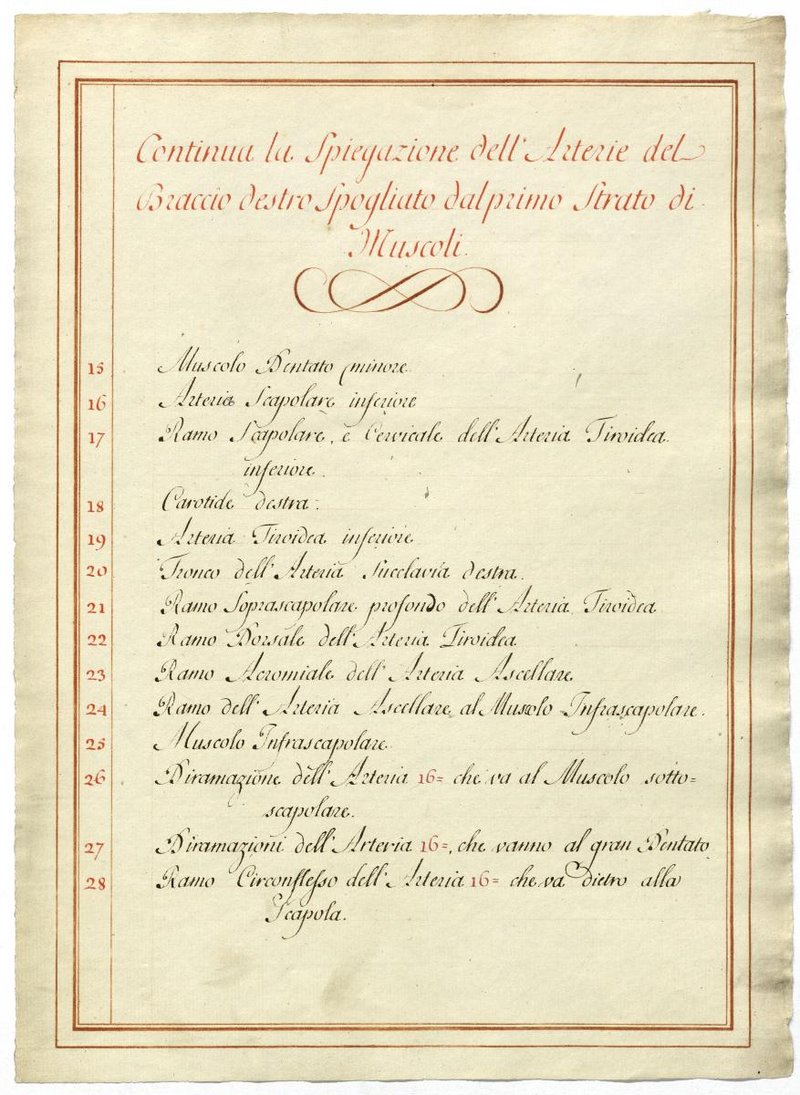 Continua la Spiegazione dell'Arterie del
Braccio destro Spogliato dal primo Strato di
Muscoli.
15 Muscolo Dentato minore
16 Arteria Scapolare inferiore
17 Ramo Scapolare, e Cervicale dell'Arteria Tiroidea
inferiore.
18 Carotide destra.
19 Arteria Tiroidea inferiore
20 Tronco dell'Arteria Succlavia destra.
21 Ramo Soprascapolare profondo dell'Arteria Tiroidea
22 Ramo Dorsale dell'Arteria Tiroidea
23 Ramo Acromiale dell'Arteria Ascellare
24 Ramo dell'Arteria Ascellare al Muscolo Infrascapolare.
25 Muscolo Infrascapolare
26 Diramazione dell'Arteria 16= che va al Muscolo sotto=
scapolare.
27 Diramazioni dell'Arteria 16=, che vanno al gran Dentato
28 Ramo Circonflesso dell'Arteria 16= che va dietro alla
Scapola.